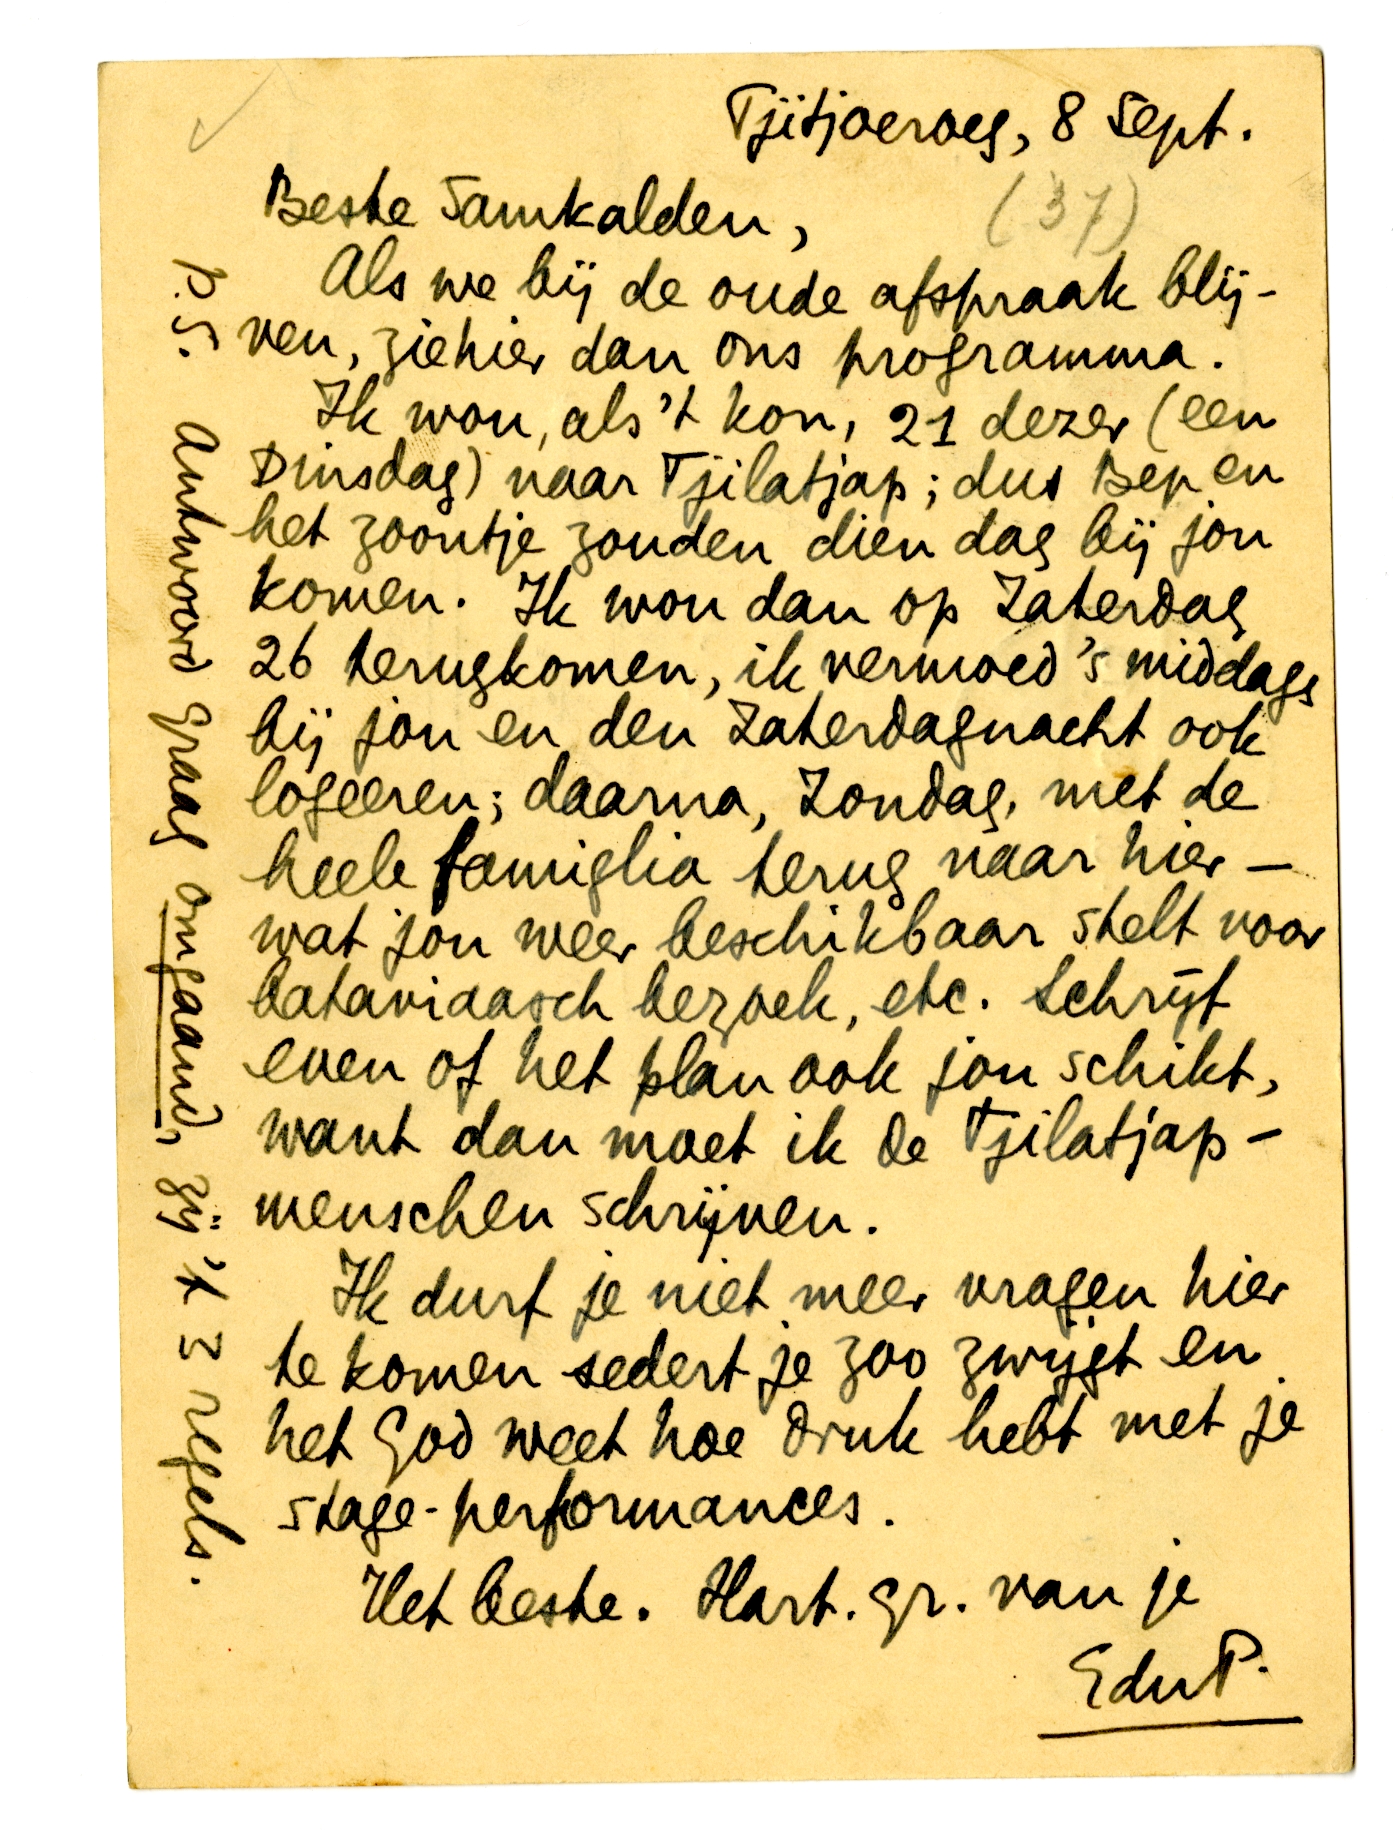 Tjitjoeroeg, 8 Sept.
(37)
Beste Samkalden,
Als we bij de oude afspraak blij-
ven, ziehier dan ons programma.
Ik wou, als 't kon, 21 dezer (een
Dinsdag) naar Tjilatjap; dus Bep en
het zoontje zouden dien dag bij jou
komen. Ik wou dan op Zaterdag
26 terugkomen, ik vermoed 's middags
bij jou en den Zaterdagnacht ook
logeeren; daarna, Zondag, met de
heele famiglia terug naar hier —
wat jou weer beschikbaar stelt voor
bataviaasch bezoek, etc. Schrijf
even of het plan ook jou schikt,
want dan moet ik de Tjilatjap-
menschen schrijven.
Ik durf je niet meer vragen hier
te komen sedert je zoo zwijgt en
het God weet hoe druk hebt met je
stage-performances.
Het beste. Hart. gr. van je
EduP.
P.S. Antwoord graag omgaand, zij 't 3 regels.